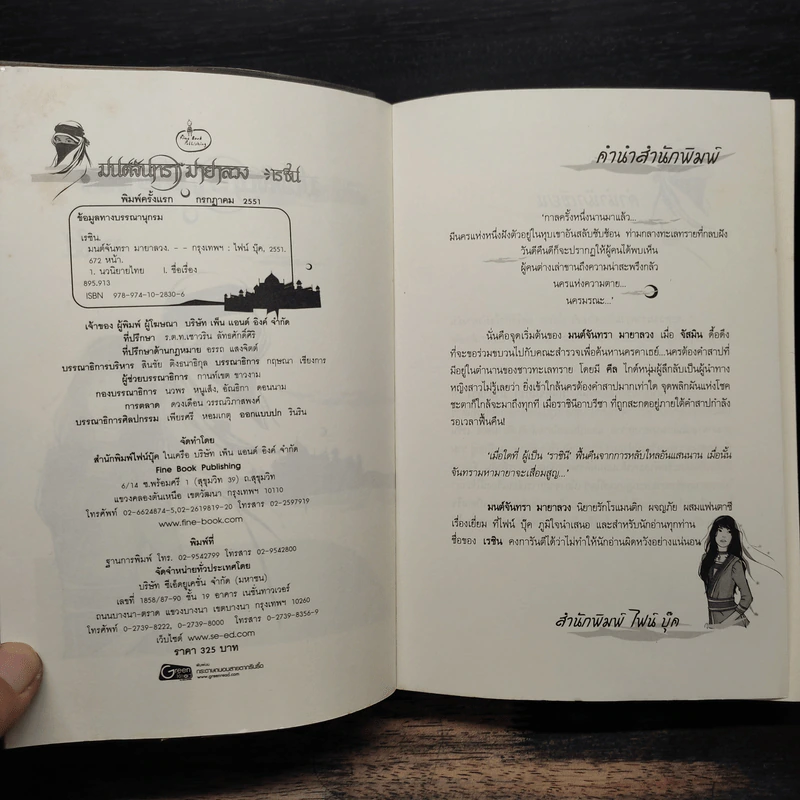 Fine Book
Publishing
มนต์จันทรา มายาลวง เรซิน
พิมพ์ครั้งแรก กรกฎาคม 2551
ข้อมูลทางบรรณานุกรม
เรซิน.
มนต์จันทรา มายาลวง. -- กรุงเทพฯ : ไฟน์ บุ๊ค, 2551.
672 หน้า.
1. นวนิยายไทย I. ชื่อเรื่อง
895.913
ISBN 978-974-10-2830-6
เจ้าของ ผู้พิมพ์ ผู้โฆษณา บริษัท เพ็น แอนด์ อิงค์ จำกัด
ที่ปรึกษา ร.ต.ท.เชาวริน ลัทธศักดิ์ศิริ
ที่ปรึกษาด้านกฎหมาย อรรถ แสงจิตต์
บรรณาธิการบริหาร สินชัย ติงธนาธิกุล บรรณาธิการ กฤษณา เชียงการ
ผู้ช่วยบรรณาธิการ กานท์เขต ชาวงาม
กองบรรณาธิการ นวพร หนูเส็ง, อัณธิกา ดอนนาม
การตลาด ดวงเดือน วรรณวิภาสพงศ์
บรรณาธิการศิลปกรรม เพียรศรี หอมเกตุ ออกแบบปก รินริน
จัดทำโดย
สำนักพิมพ์ไฟน์บุ๊ค ในเครือ บริษัท เพ็น แอนด์ อิงค์ จำกัด
Fine Book Publishing
6/14 ซ.พร้อมศรี 1 (สุขุมวิท 39) ถ.สุขุมวิท
แขวงคลองตันเหนือ เขตวัฒนา กรุงเทพฯ 10110
โทรศัพท์ 02-6624874-5,02-2619819-20 โทรสาร 02-2597919
www.fine-book.com
พิมพ์ที่
ฐานการพิมพ์ โทร. 02-9542799 โทรสาร 02-9542800
จัดจำหน่ายทั่วประเทศโดย
บริษัท ซีเอ็ดยูเคชั่น จำกัด (มหาชน)
เลขที่ 1858/87-90 ชั้น 19 อาคาร เนชั่นทาวเวอร์
ถนนบางนา-ตราด แขวงบางนา เขตบางนา กรุงเทพฯ 10260
โทรศัพท์ 0-2739-8222, 0-2739-8000 โทรสาร 0-2739-8356-9
เว็บไซต์ www.se-ed.com
ราคา 325 บาท
Green
Read
กระดาษถนอมสายตากรีนรี้ด
www.greenread.com
คำนำสำนักพิมพ์
'กาลครั้งหนึ่งนานมาแล้ว...
มีนครแห่งหนึ่งฝังตัวอยู่ในหุบเขาอันสลับซับซ้อน ท่ามกลางทะเลทรายที่กลบฝัง
วันดีคืนดีก็จะปรากฏให้ผู้คนได้พบเห็น
ผู้คนต่างเล่าขานถึงความน่าสะพรึงกลัว
นครแห่งความตาย...
นครมรณะ...'
นั่นคือจุดเริ่มต้นของ มนต์จันทรา มายาลวง เมื่อ จัสมิน ดื้อดึง
ที่จะขอร่วมขบวนไปกับคณะสำรวจเพื่อค้นหานครคาเธย์...นครต้องคำสาปที่
มีอยู่ในตำนานของชาวทะเลทราย โดยมี คีล ไกด์หนุ่มผู้ลึกลับเป็นผู้นำทาง
หญิงสาวไม่รู้เลยว่า ยิ่งเข้าใกล้นครต้องคำสาปมากเท่าใด จุดพลิกผันแห่งโชค
ชะตาก็ใกล้จะมาถึงทุกที เมื่อราชินีอาบรีซา ที่ถูกสะกดอยู่ภายใต้คำสาปกำลัง
รอเวลาฟื้นคืน!
'เมื่อใดที่ ผู้เป็น 'ราชินี' ฟื้นคืนจากการหลับใหลอันแสนนาน เมื่อนั้น
จันทรามหามายาจะเสื่อมสูญ...'
มนต์จันทรา มายาลวง นิยายรักโรแมนติก ผจญภัย ผสมแฟนตาซี
เรื่องเยี่ยม ที่ไฟน์ บุ๊ค ภูมิใจนำเสนอ และสำหรับนักอ่านทุกท่าน
ชื่อของ เรซิน คงการันตีได้ว่าไม่ทำให้นักอ่านผิดหวังอย่างแน่นอน
สำนักพิมพ์ ไฟน์ บุ๊ค